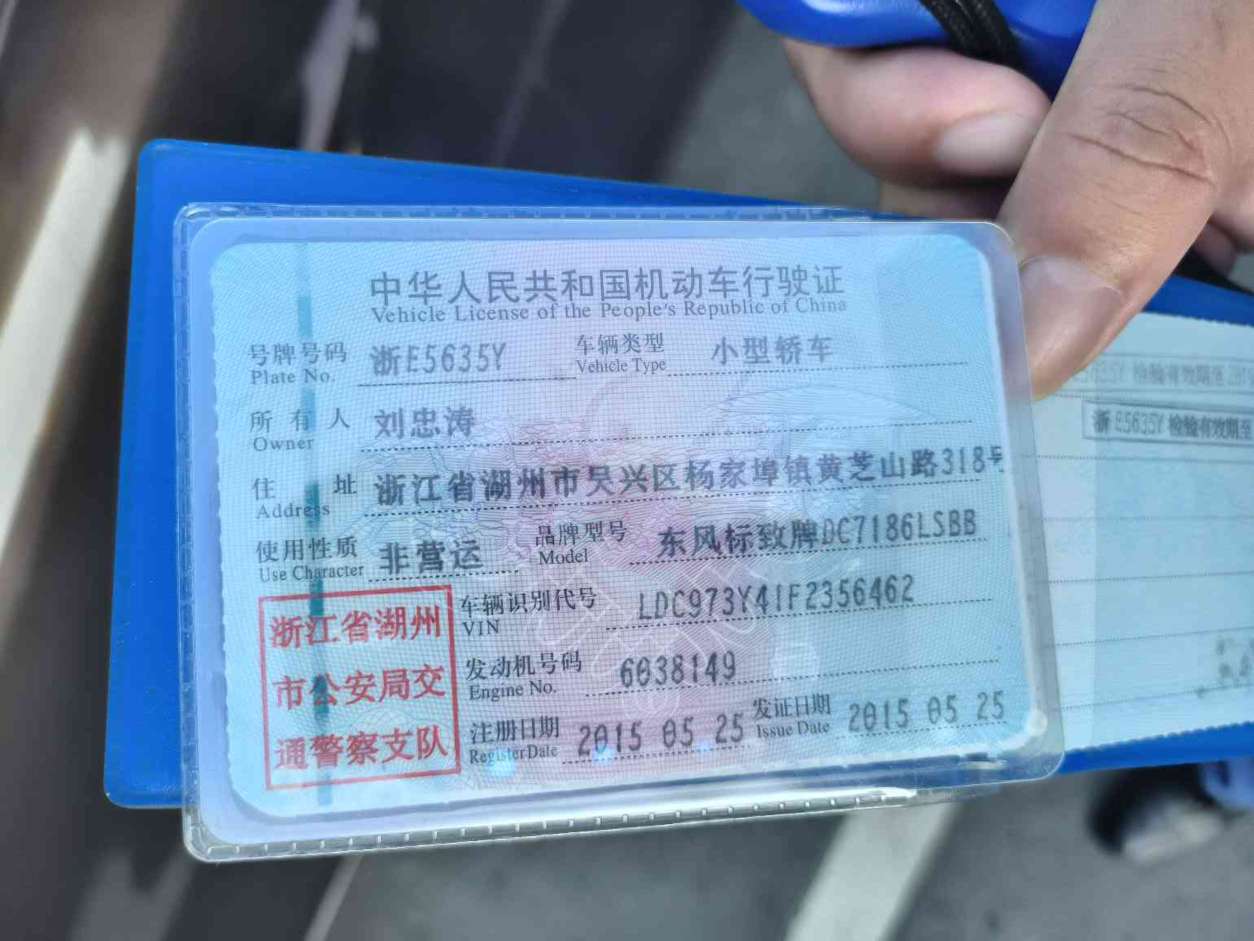 中华人民共和国机动车行驶证
Vehicle License of the People's Republic of China
号牌号码 浙E5635Y 车辆类型 小型轿车
Plate No. Vehicle Type
所有人 刘忠涛
Owner
住址 浙江省湖州市吴兴区杨家埠镇黄芝山路318号
Address
使用性质 非营运 品牌型号 东风标致牌DC7186LSBB
Use Character Model
浙江省湖州
市公安局交
通警察支队
车辆识别代号 LDC973Y41F2356462
VIN
发动机号码 6038149
Engine No.
注册日期 2015 05 25 发证日期 2015 05 25
Register Date Issue Date
浙E5635Y 检验有效期至